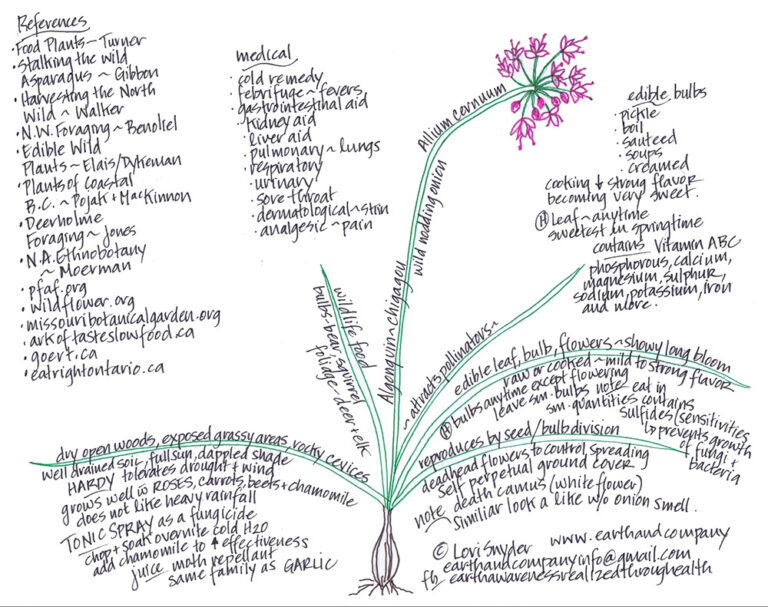 References
·Food Plants~Turner
·Stalking the wild
Asparagus ~ Gibbon
·Harvesting the North
Wild ~ Walker
·N.W. Foraging ~ Benoliel
·Edible Wild
Plants ~ Elais/Dykeman
·Plants of Coastal
B.C. ~ Pojak + MacKinnon
·Deerholme
Foraging ~ Jones
·N.A. Ethnobotany
~ Moerman
·pfaf.org
·wildflower.org
·missouribotanicalgarden.org
·arkoftasteslowfood.ca
·goert.ca
·eatrightontario.ca
medical
·cold remedy
·febrifuge ~ fevers
·gastrointestinal aid
·kidney aid
·liver aid
·pulmonary ~ lungs
·respiratory
·urinary
·sore throat
·dermatological ~ skin
·analgesic ~ pain
Allium cernuum
wild nodding onion
Algonquin ~ chigagou
edible bulbs
·pickle
·boil
·sauteed
·soups
·creamed
cooking ↓ strong flavor
becoming very sweet.
Ⓗ Leaf ~ anytime
sweetest in springtime
contains Vitamin ABC
phosphorous, calcium,
magnesium, sulphur,
sodium, potassium, iron
and more.
wildlife food
bulbs-bear, squirrel
foliage-deer + elk
~ attracts pollinators ~
edible leaf, bulb, flowers ~ showy long bloom
raw or cooked ~ mild to strong flavor
Ⓗ bulbs anytime except flowering
leave sm. bulbs note eat in
sm. quantities contains
sulfides (sensitivities
↳ prevents growth
of fungi +
bacteria
reproduces by seed/bulb division
deadhead flowers to control spreading
self perpetual ground cover
note death camus (white flower)
Similiar look a like w/o onion smell.
dry open woods, exposed grassy areas, rocky cevices
well drained soil, full sun, dappled shade
HARDY tolerates drought + wind
grows well w ROSES, carrots, beets + chamomile
does not like heavy rainfall
TONIC SPRAY as a fungicide
chop + soak overnite cold H2O
add chamomile to ↑ effectiveness
juice moth repellant
same family as GARLIC
© Lori Snyder www.earthandcompany
earthandcompanyinfo@gmail.com
fb earthawarenessrealizedthroughhealth